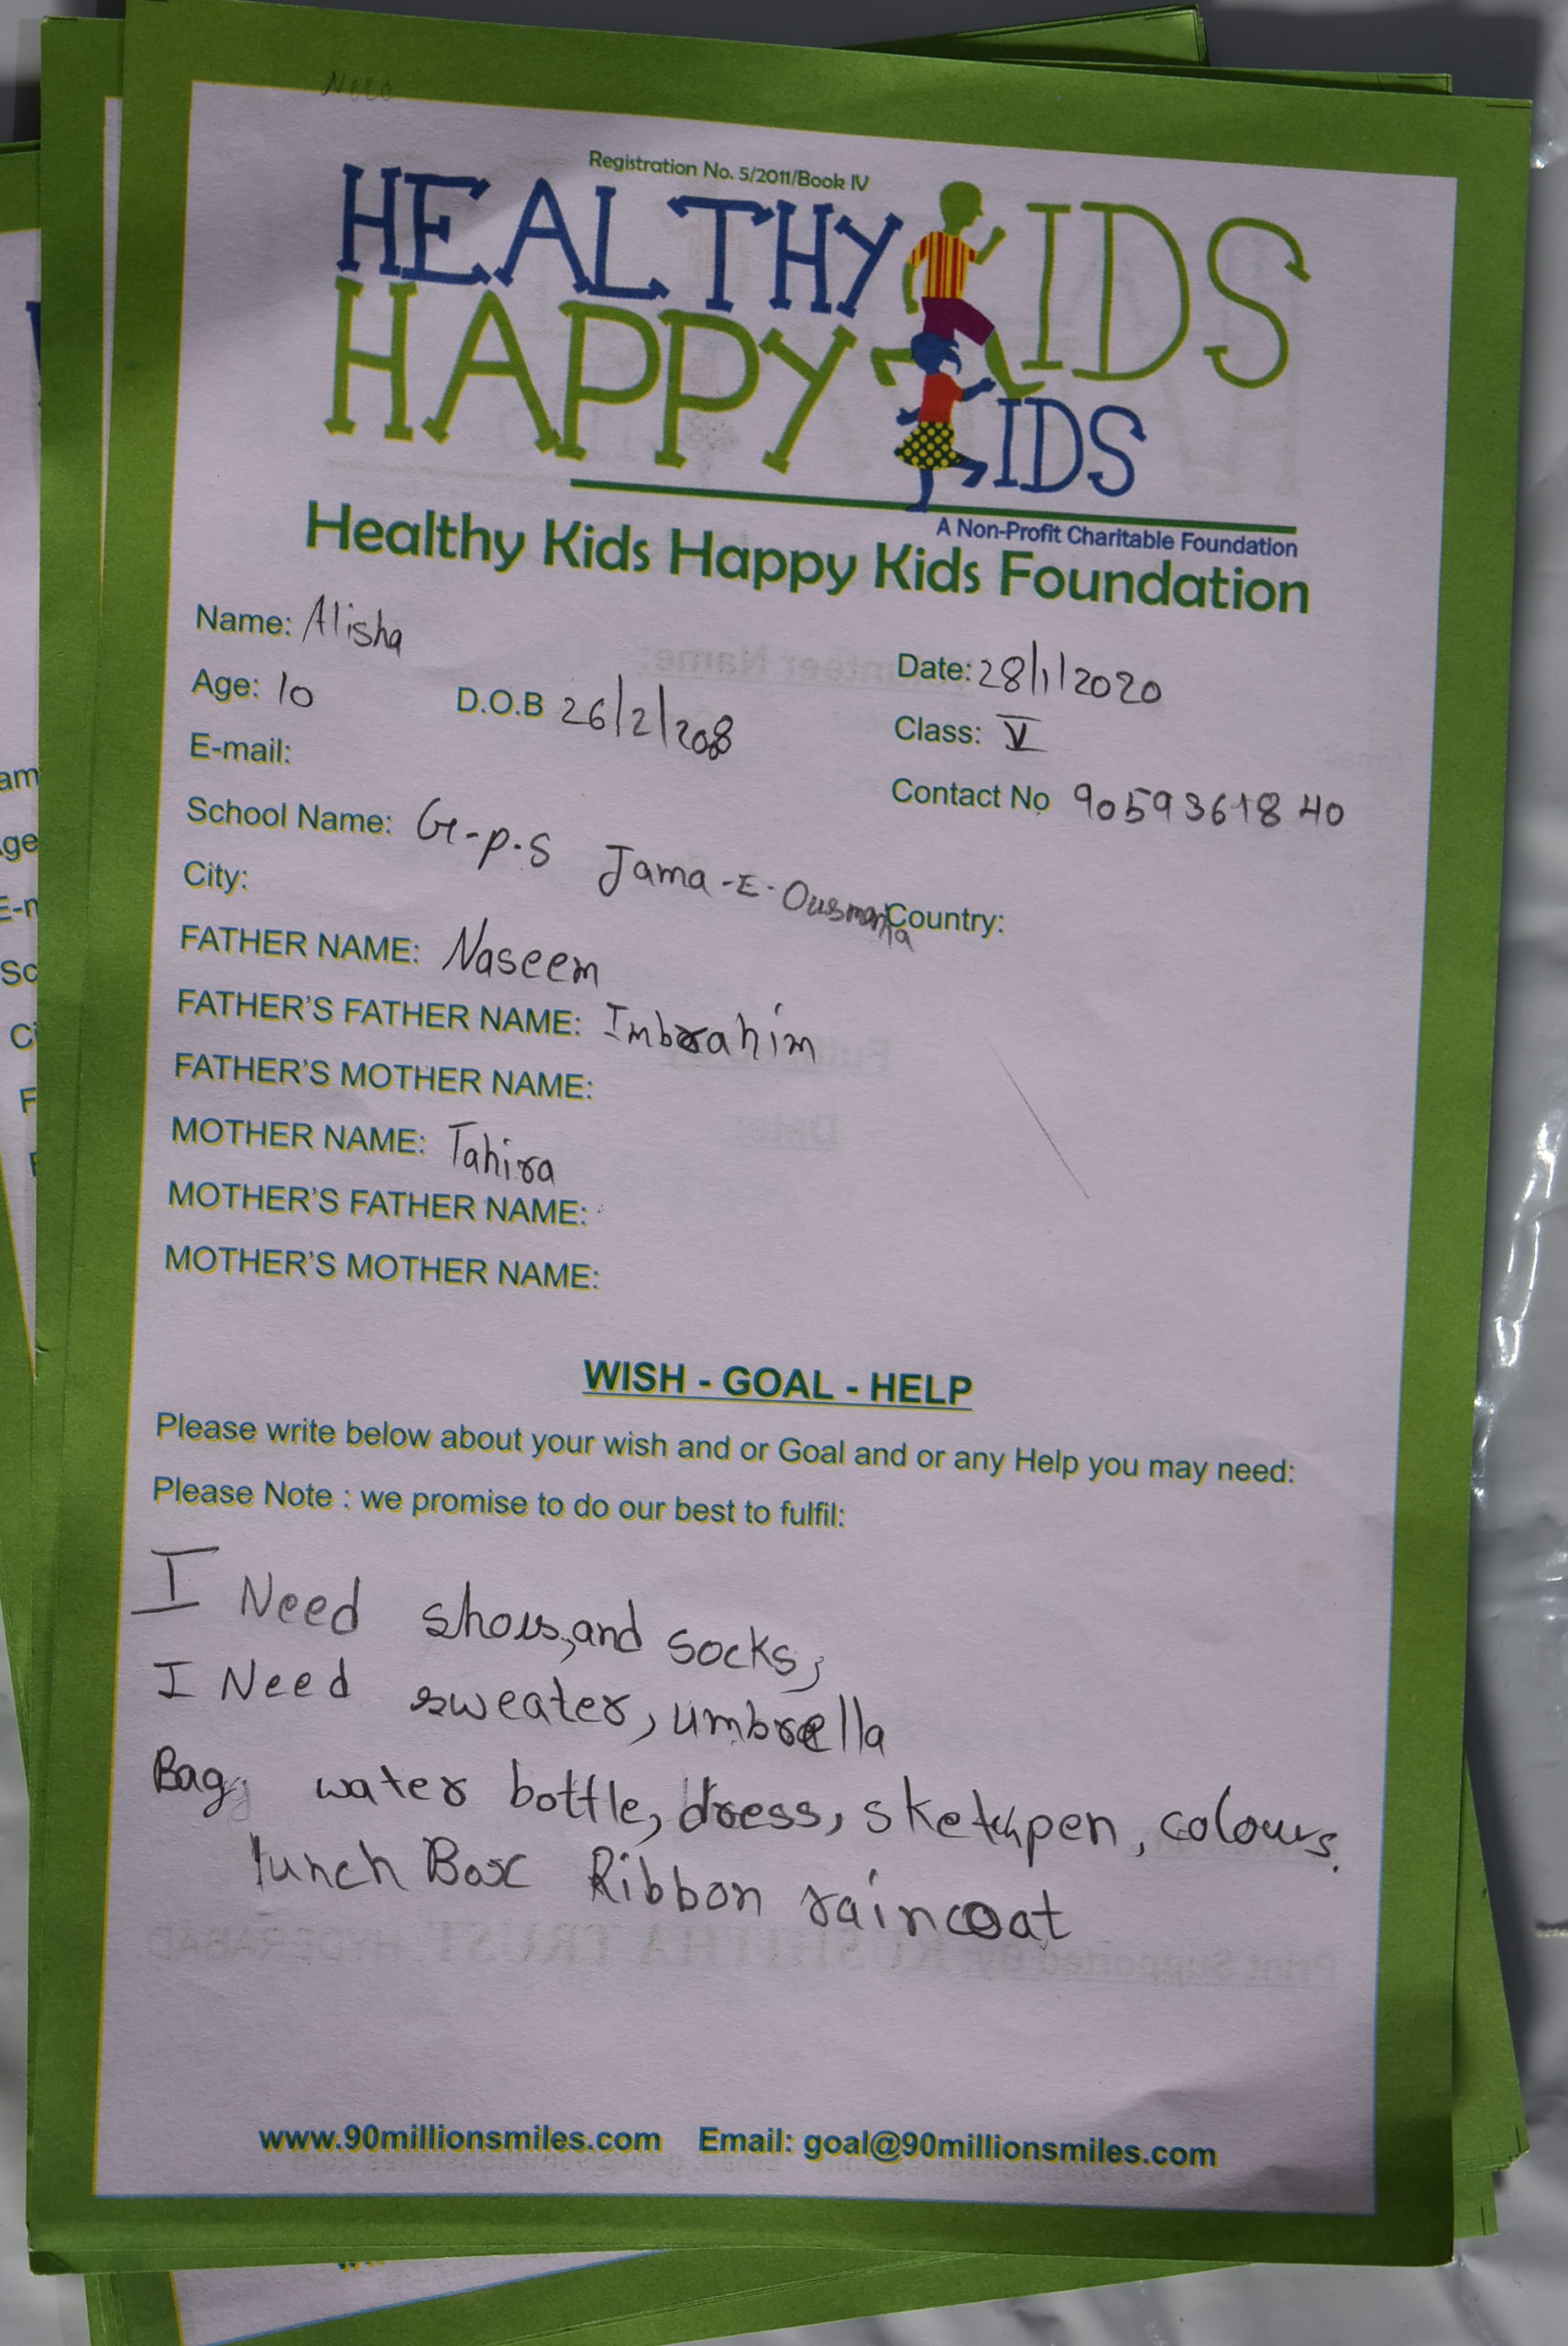 Need
Registration No. 5/2011/Book IV
HEALTHY KIDS
HAPPY KIDS
A Non-Profit Charitable Foundation
Healthy Kids Happy Kids Foundation
Name: Alisha
Date: 28/1/2020
Age: 10 D.O.B 26/2/208
Class: V
E-mail:
Contact No 9059361840
School Name: G-p.s Jama-E-Ousmania
City: Country:
FATHER NAME: Naseem
FATHER'S FATHER NAME: Imbrahim
FATHER'S MOTHER NAME:
MOTHER NAME: Tahira
MOTHER'S FATHER NAME:
MOTHER'S MOTHER NAME:
WISH - GOAL - HELP
Please write below about your wish and or Goal and or any Help you may need:
Please Note : we promise to do our best to fulfil:
I Need shous,and socks,
I Need sweater, umbrella
Bag, water bottle, dress, sketchpen, colours.
lunch Box Ribbon raincoat
www.90millionsmiles.com Email: goal@90millionsmiles.com